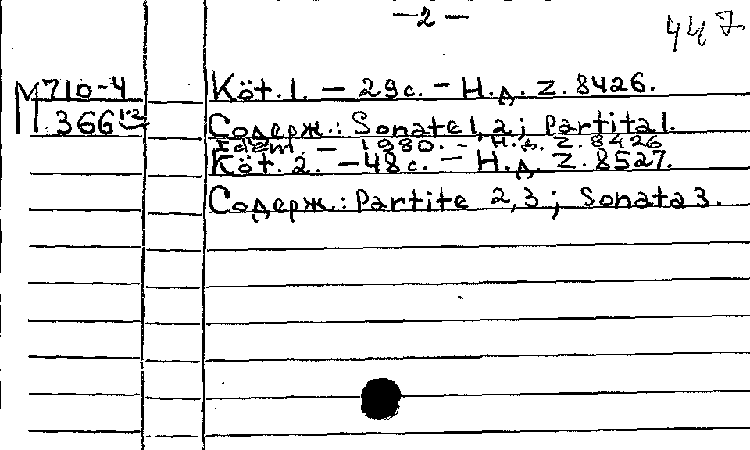 — 2 —
447
М 710-4
366 1-2
Köt. 1. — 29 с. — Н. д. Z. 8426.
Содерж.: Sonate 1, 2; Partita 1.
Idem. — 1980. — Н. д. Z. 8426
Köt. 2. — 48 с. — Н. д. Z. 8527.
Содерж.: Partite 2, 3; Sonata 3.